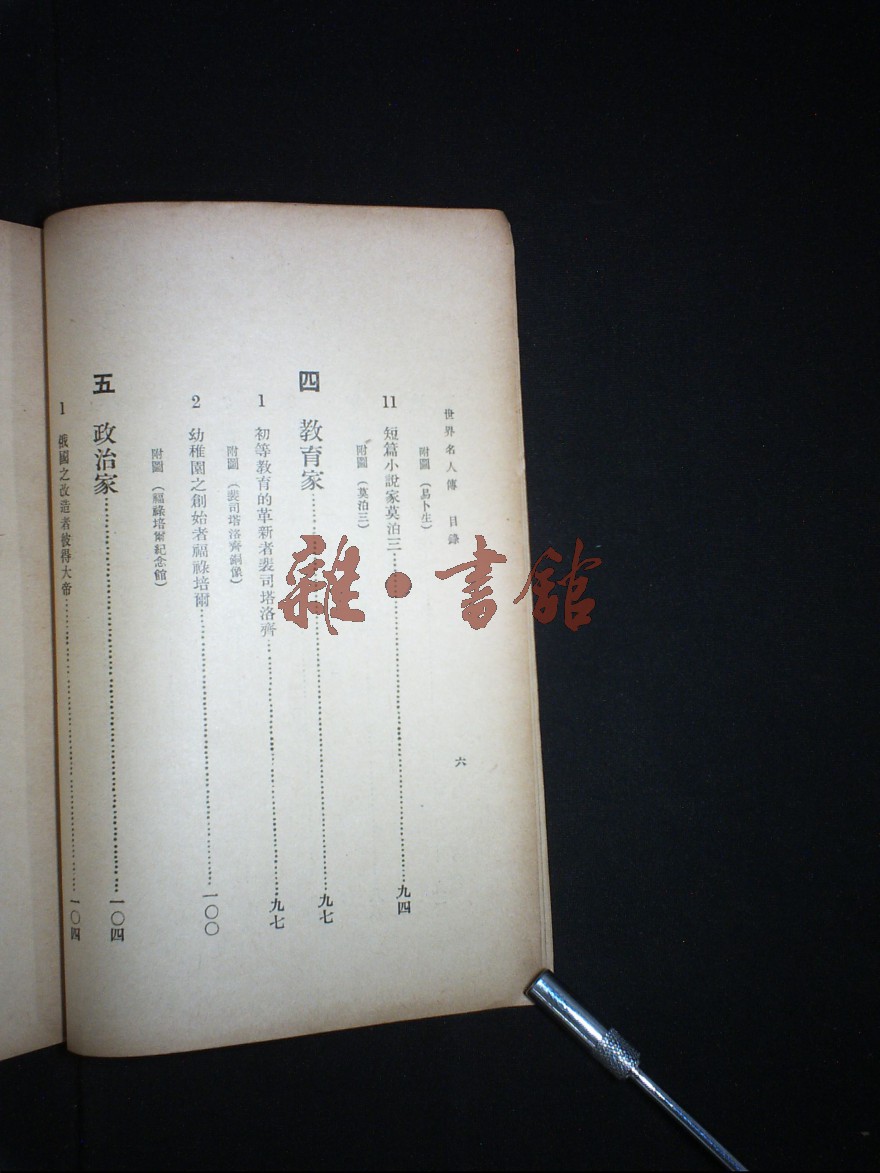 世界名人傳 目錄 六
附圖（易卜生）
11 短篇小說家莫泊三……九四
附圖（莫泊三）
四 教育家……九七
1 初等教育的革新者裴司塔洛齊……九七
附圖（裴司塔洛齊銅像）
2 幼稚園之創始者福祿培爾……一〇〇
附圖（福祿培爾紀念館）
五 政治家……一〇四
1 俄國之改造者彼得大帝……一〇四
雜·書館